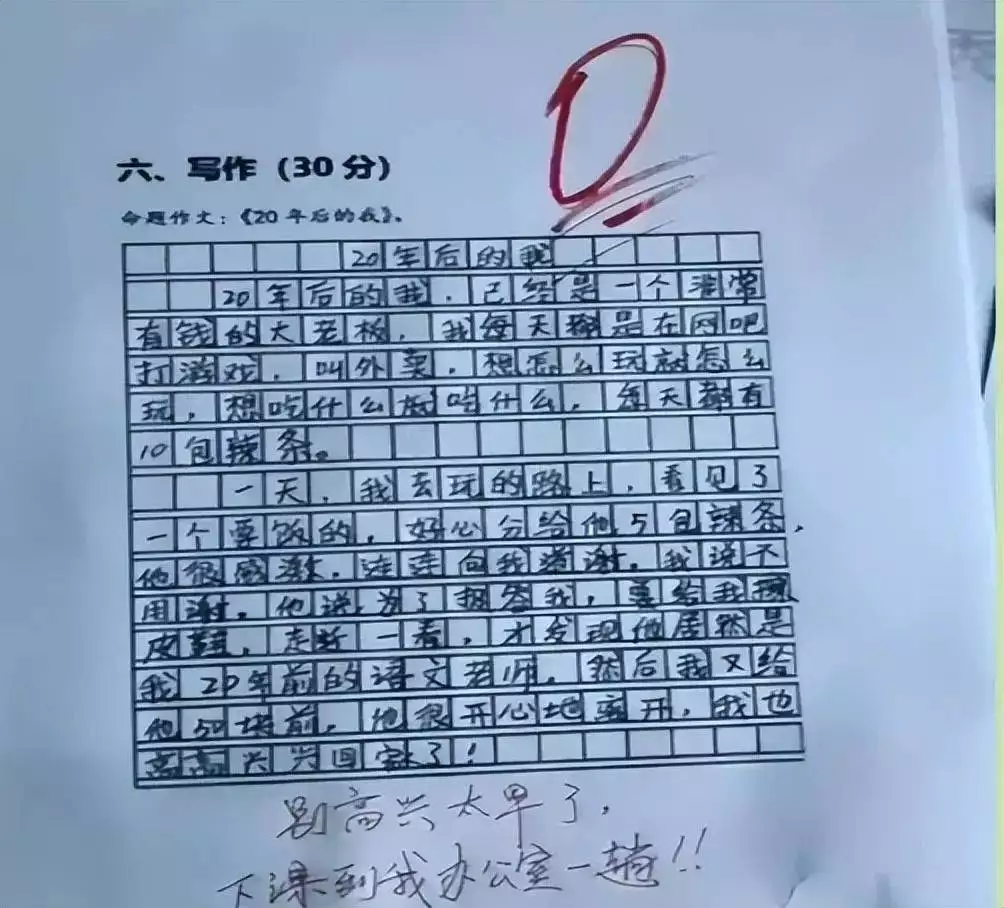 六、写作（30分）
命题作文：《20年后的我》。
20年后的我
20年后的我，已经是一个非常
有钱的大老板，我每天都是在网吧
打游戏，叫外卖，想怎么玩就怎么
玩，想吃什么就吃什么，每天都有
10包辣条。
一天，我去玩的路上，看见了
一个要饭的，好心分给他5包辣条，
他很感激，连连向我道谢，我说不
用谢，他说，为了报答我，要给我擦
皮鞋，走近一看，才发现他居然是
我20年前的语文老师，然后我又给
他50块前，他很开心地离开，我也
高高兴兴回家了！
别高兴太早了，
下课到我办公室一趟!!